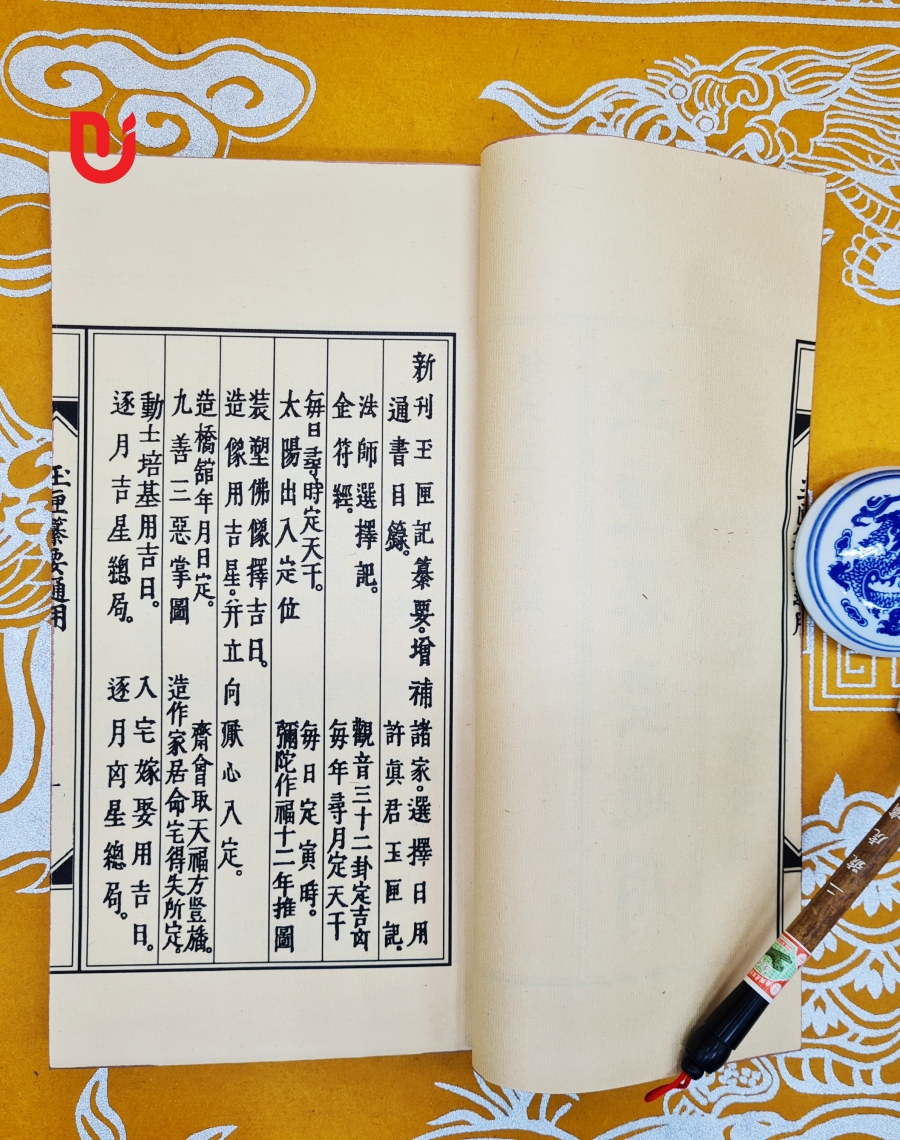 新刊玉匣記纂要。增補諸家。選擇日用
通書目錄。 許眞君玉匣記。
法師選擇記。 觀音三十二卦定吉凶
企符經。 每年尋月定天干
每日尋時定天干。 每日定寅時。
太陽出入定位 彌陀作福十二年推圖
装塑佛像擇吉日。
造像用吉星。并立向厭心入定。
造橋舘年月日定。 齋會取天福方豎旛。
九善三惡掌圖 造作家居命宅得失所定。
動土培基用吉日。 入宅嫁娶用吉日。
逐月吉星總局。 逐月凶星總局。
玉匣纂要通用
虎號二